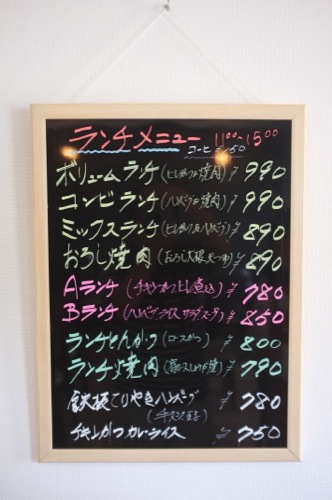 ランチメニュー 11:00~15:00
コーヒー 50
ボリュームランチ(ヒレカツ&焼肉) ¥990
コンビランチ(ハンバーグ&焼肉) ¥990
ミックスランチ(ヒレカツ&ハンバーグ) ¥890
おろし焼肉(おろし大根、天つゆ) ¥890
Aランチ(チキンカツ) ¥780
Bランチ(ハンバーグ、ライス、サラダ) ¥850
ランチとんかつ(ロースかつ) ¥800
ランチ焼肉 ¥790
鉄板てりやきハンバーグ ¥780
チキンかつカレーライス ¥750